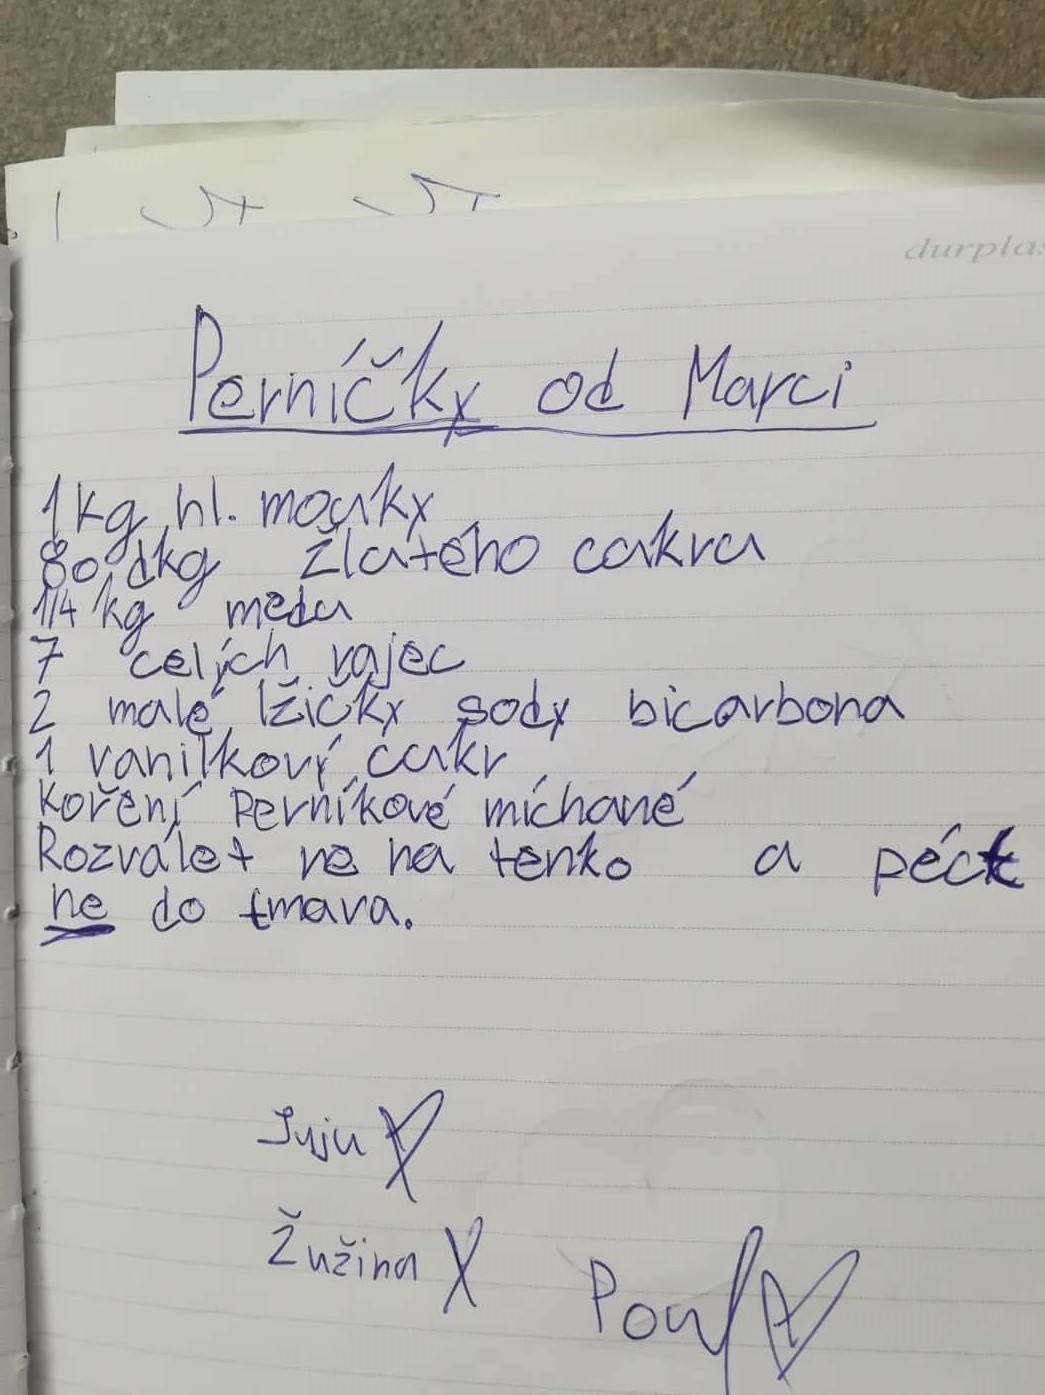 durplas
Perníčky od Marci
1kg hl. mouky
80 dkg žlutého cukru
1/4 kg medu
7 celých vajec
2 malé lžičky sody bicarbona
1 vanilkový cukr
Koření perníkové míchané
Rozválet ne na tenko a péct
ne do tmava.
Juju
Žužina